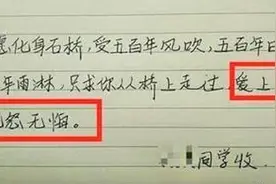 化身石桥，受五百年风吹，五百年日
年雨淋，只求你从桥上走过，爱上
怨无悔。
同学收